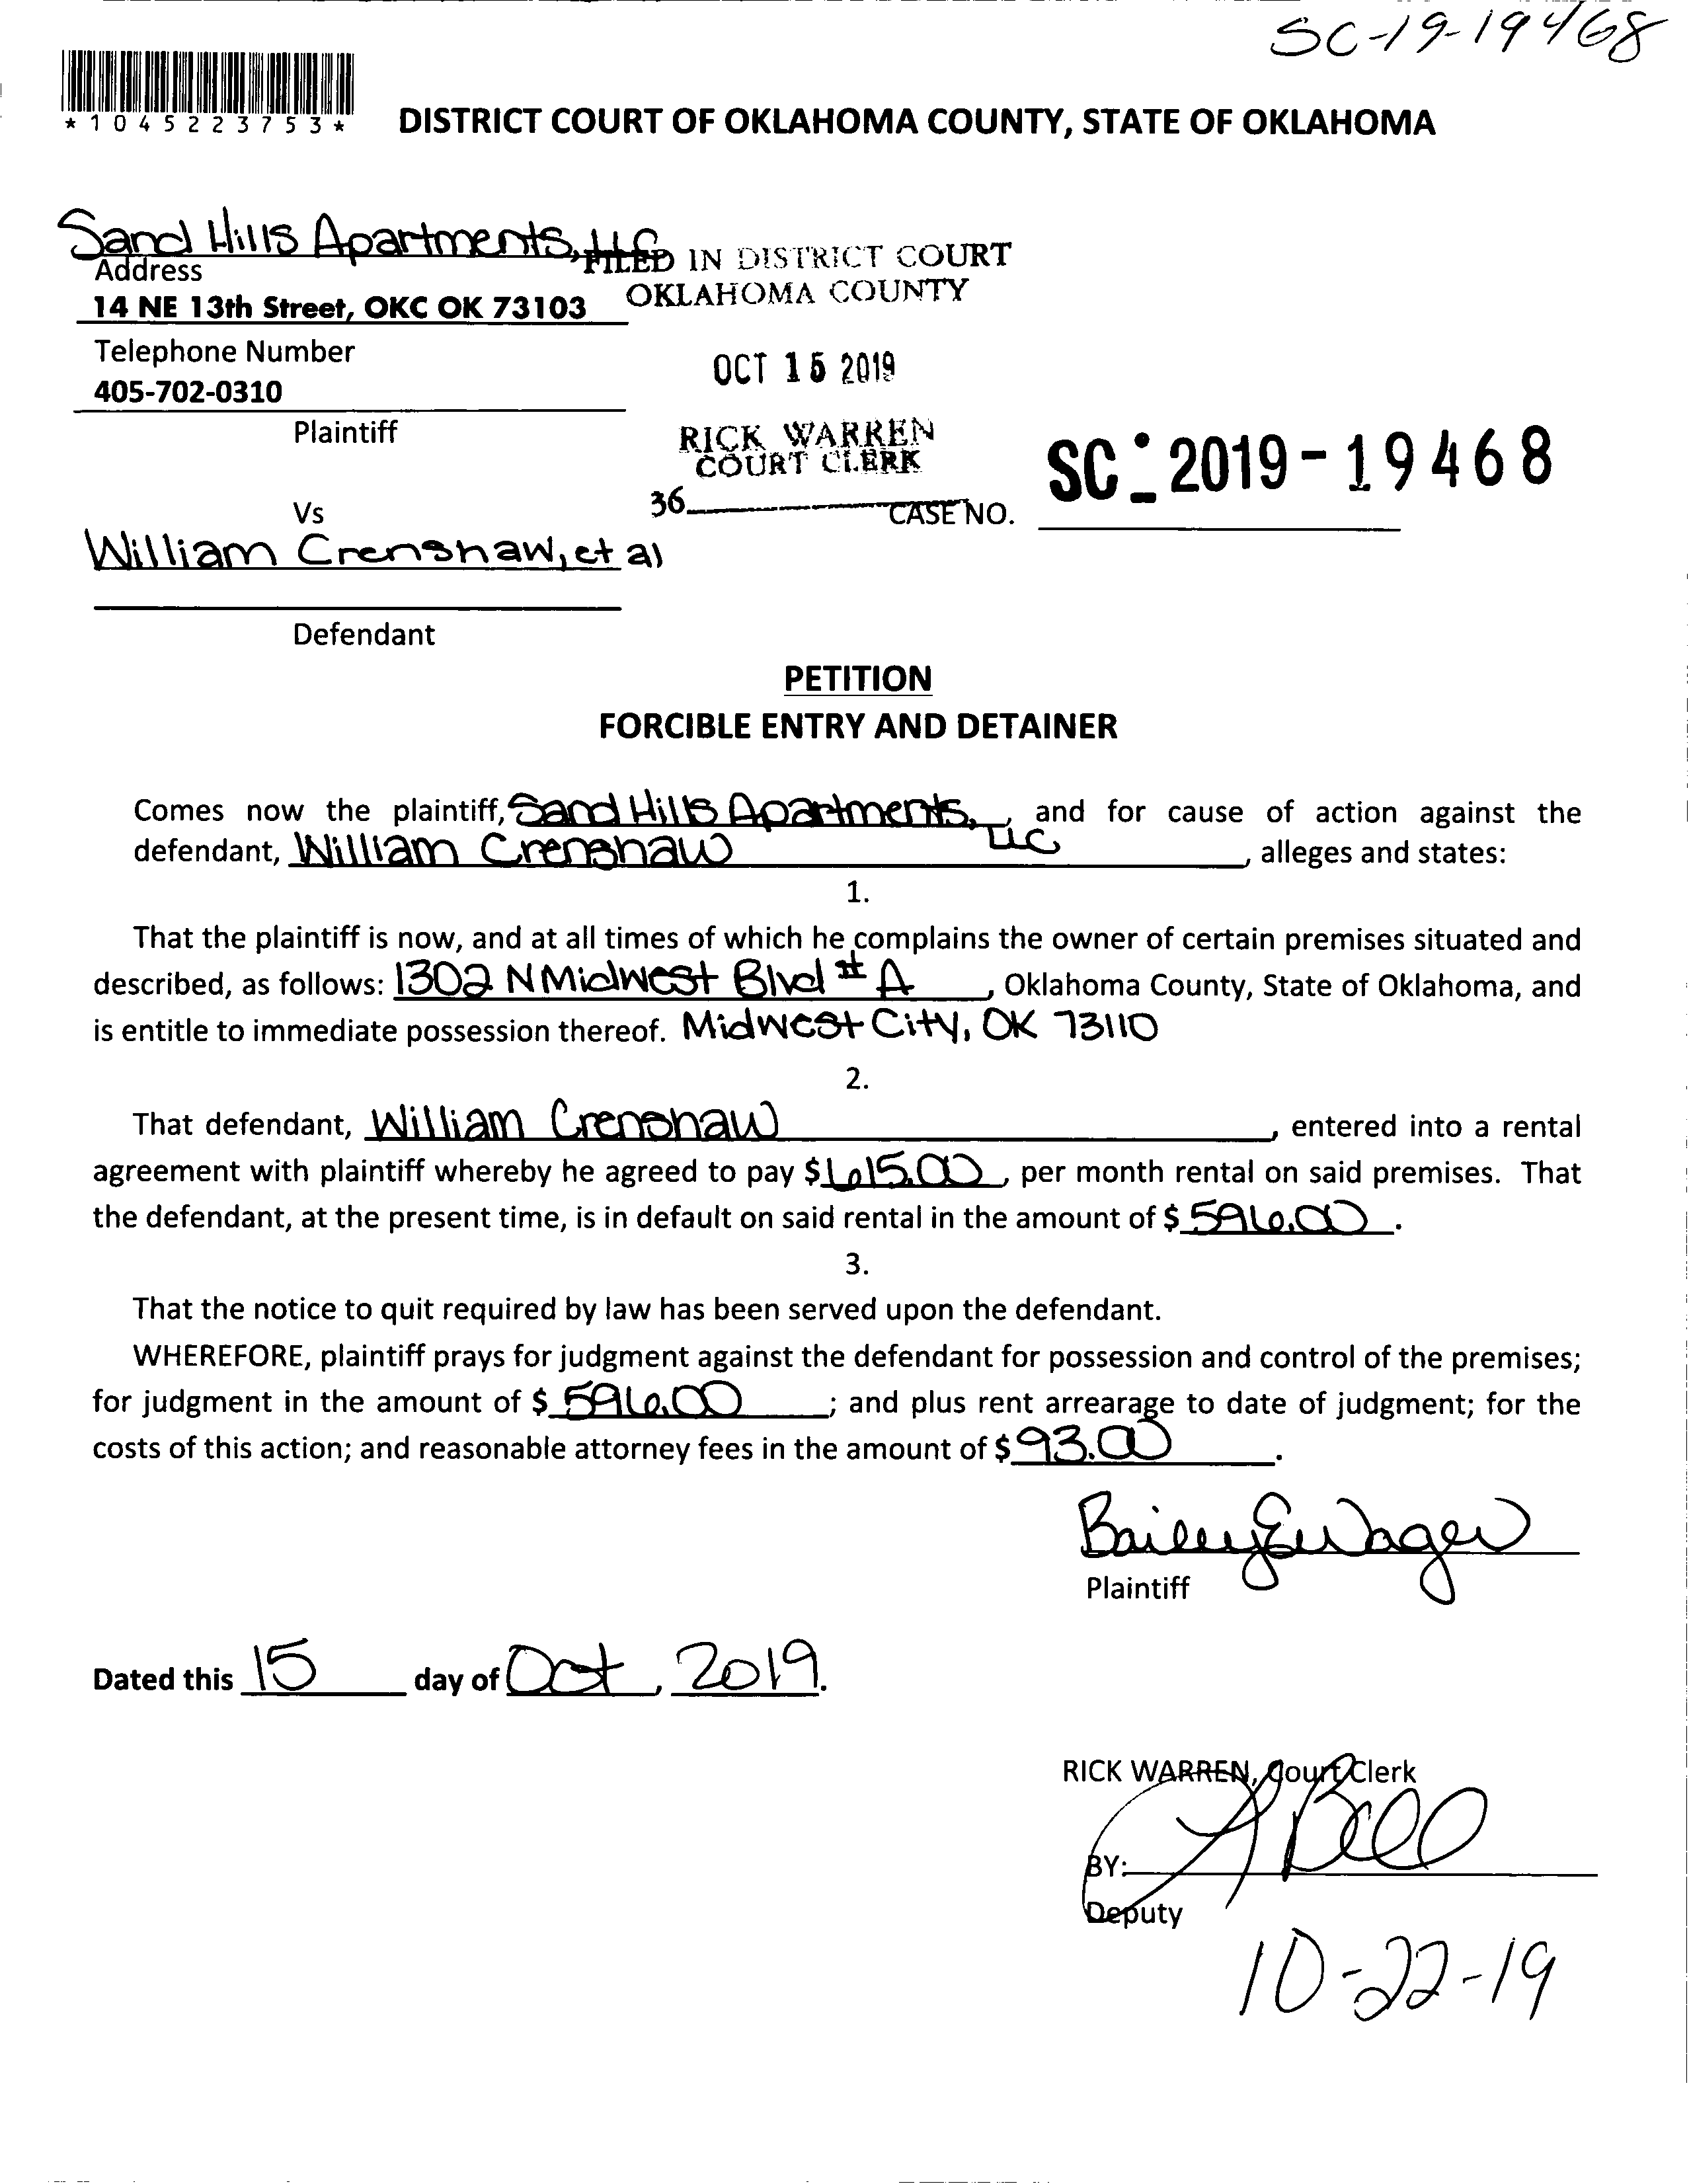 SC-19-19468
*1045223753*
DISTRICT COURT OF OKLAHOMA COUNTY, STATE OF OKLAHOMA
Sand Hills Apartments, LLC
FILED IN DISTRICT COURT
Address
OKLAHOMA COUNTY
14 NE 13th Street, OKC OK 73103
Telephone Number
OCT 15 2019
405-702-0310
Plaintiff
RICK WARREN
COURT CLERK
SC - 2019 - 19468
36
CASE NO.
Vs
William Crenshaw, et al
Defendant
PETITION
FORCIBLE ENTRY AND DETAINER
Comes now the plaintiff, Sand Hills Apartments, LLC, and for cause of action against the
defendant, William Crenshaw, alleges and states:
1.
That the plaintiff is now, and at all times of which he complains the owner of certain premises situated and
described, as follows: 1302 N Midwest Blvd # A, Oklahoma County, State of Oklahoma, and
is entitle to immediate possession thereof. Midwest City, OK 73110
2.
That defendant, William Crenshaw, entered into a rental
agreement with plaintiff whereby he agreed to pay $ 615.00, per month rental on said premises. That
the defendant, at the present time, is in default on said rental in the amount of $ 596.00.
3.
That the notice to quit required by law has been served upon the defendant.
WHEREFORE, plaintiff prays for judgment against the defendant for possession and control of the premises;
for judgment in the amount of $ 596.00; and plus rent arrearage to date of judgment; for the
costs of this action; and reasonable attorney fees in the amount of $ 93.00.
Bailey E Wager
Plaintiff
Dated this 15 day of Oct, 2019.
RICK WARREN, Court Clerk
BY: Bell
Deputy
10-22-19